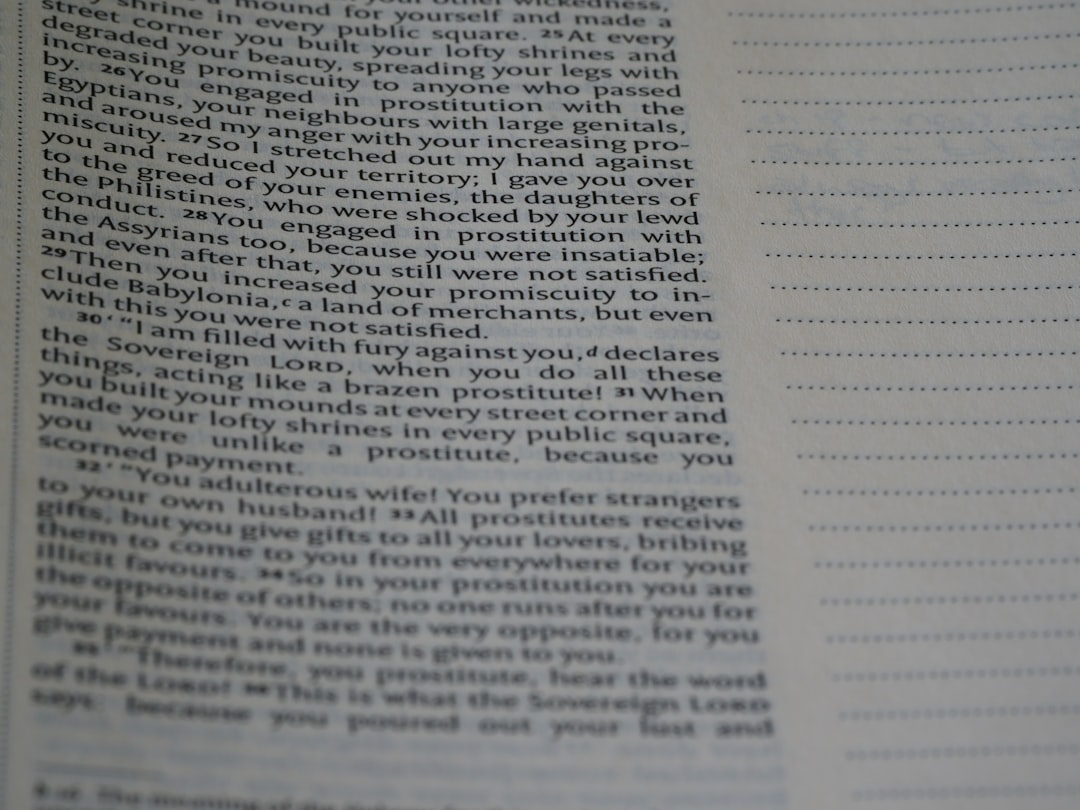 your other wickedness,
a mound for yourself and made a
shrine in every public square. 25At every
street corner you built your lofty shrines and
degraded your beauty, spreading your legs with
increasing promiscuity to anyone who passed
by. 26You engaged in prostitution with the
Egyptians, your neighbours with large genitals,
and aroused my anger with your increasing pro-
miscuity. 27So I stretched out my hand against
you and reduced your territory; I gave you over
to the greed of your enemies, the daughters of
the Philistines, who were shocked by your lewd
conduct. 28You engaged in prostitution with
the Assyrians too, because you were insatiable;
and even after that, you still were not satisfied.
29Then you increased your promiscuity to in-
clude Babylonia,c a land of merchants, but even
with this you were not satisfied.
30‘ “I am filled with fury against you,d declares
the Sovereign LORD, when you do all these
things, acting like a brazen prostitute! 31When
you built your mounds at every street corner and
made your lofty shrines in every public square,
you were unlike a prostitute, because you
scorned payment.
32‘ “You adulterous wife! You prefer strangers
to your own husband! 33All prostitutes receive
gifts, but you give gifts to all your lovers, bribing
them to come to you from everywhere for your
illicit favours. 34So in your prostitution you are
the opposite of others; no one runs after you for
your favours. You are the very opposite, for you
give payment and none is given to you.
35‘ “Therefore, you prostitute, hear the word
of the LORD! 36This is what the Sovereign LORD
says: because you poured out your lust and